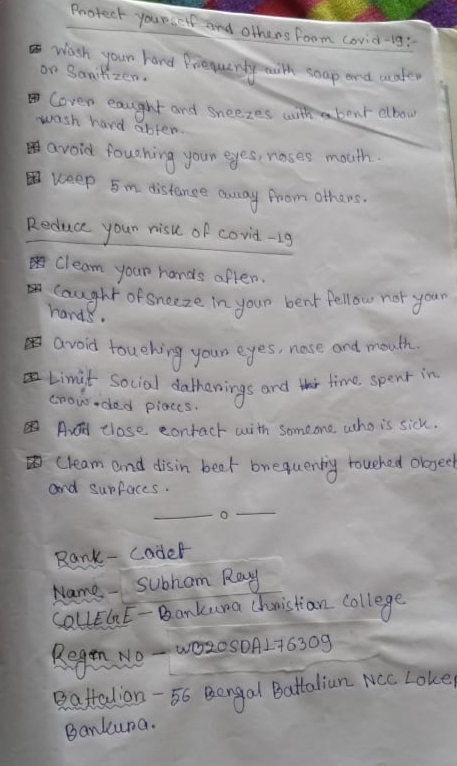 Protect yourself and others form covid-19:-
wash your hand frequenty with soap and water
or Sanitizer.
Cover caught and sneezes with a bent elbow
wash hard abter.
avoid fouching your eyes, noses mouth.
Keep 5 m distanse away from others.
Reduce your risk of covid -19
Cleam your hands after.
Caught of sneeze in your bent fellow not your
hands.
avoid touching your eyes, nose and mouth.
Limit Social datherings and time spent in
crow-ded piaces.
Avoid close contact with someone who is sick.
Cleam and disin beet brequentiy touched object
and surfaces.
— o —
Rank - Cadet
Name - Subham Ray
COLLEGE - Bankura Christian College
Regen NO - WB20SDA176309
Battalion - 56 Bengal Battaliun NCC Loke
Bankura.